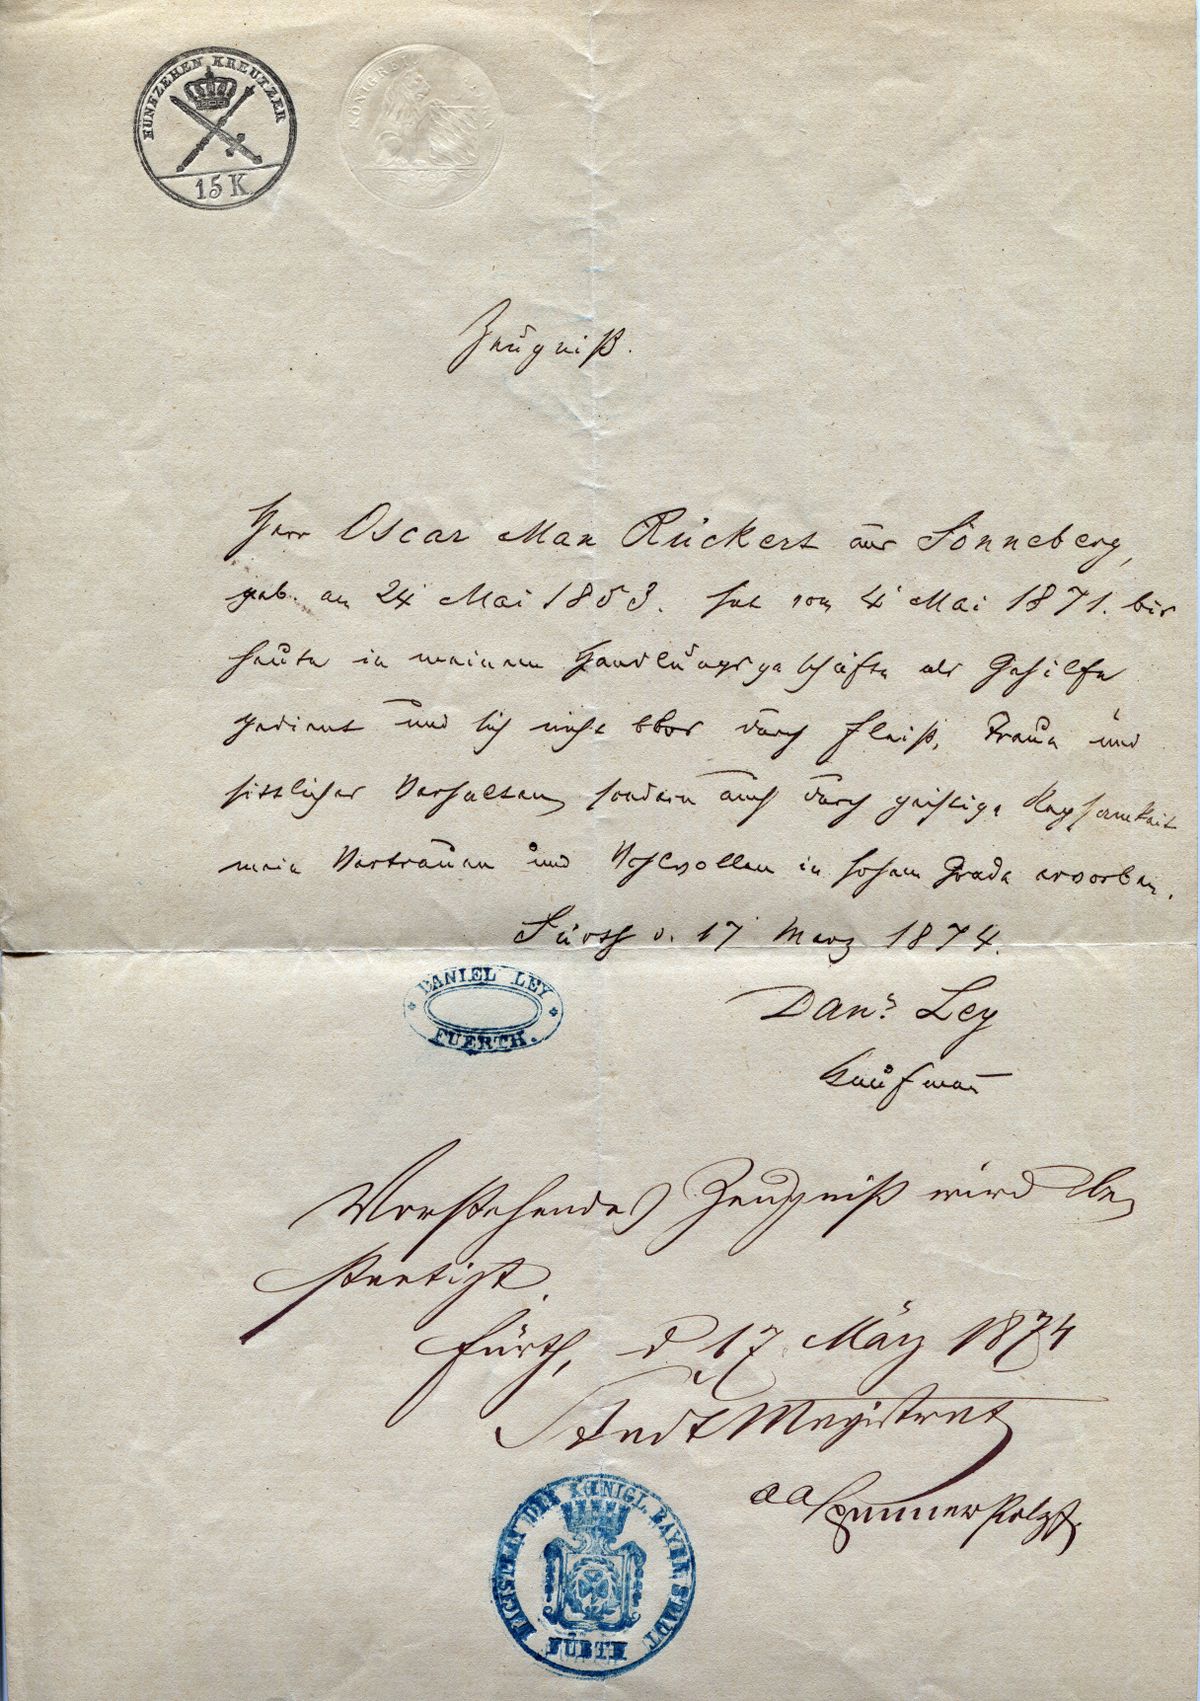 FUNFZEHEN KREUTZER
15 K
KÖNIGRE
Zeugniß.
Herr Oscar Max Rückert aus Sonneberg,
geb. am 24 Mai 1853. hat vom 4 Mai 1871. bis
heute in meinem Handlungsgeschäfte als Gehilfe
gedient und sich nicht blos durch Fleiß, Treue und
sittliches Verhalten, sondern auch durch geistige Regsamkeit
mein Vertrauen und Wohlwollen in hohem Grade erworben.
Fürth d. 17 März 1874.
DANIEL LEY
FUERTH.
Danl. Ley
Kaufmann
Vorstehendes Zeugniß wird be
staetigt.
Fürth, d 17 März 1874
Stadt Magistrat
MAGISTRAT DER KÖNIGL. BAYER. STADT
FÜRTH